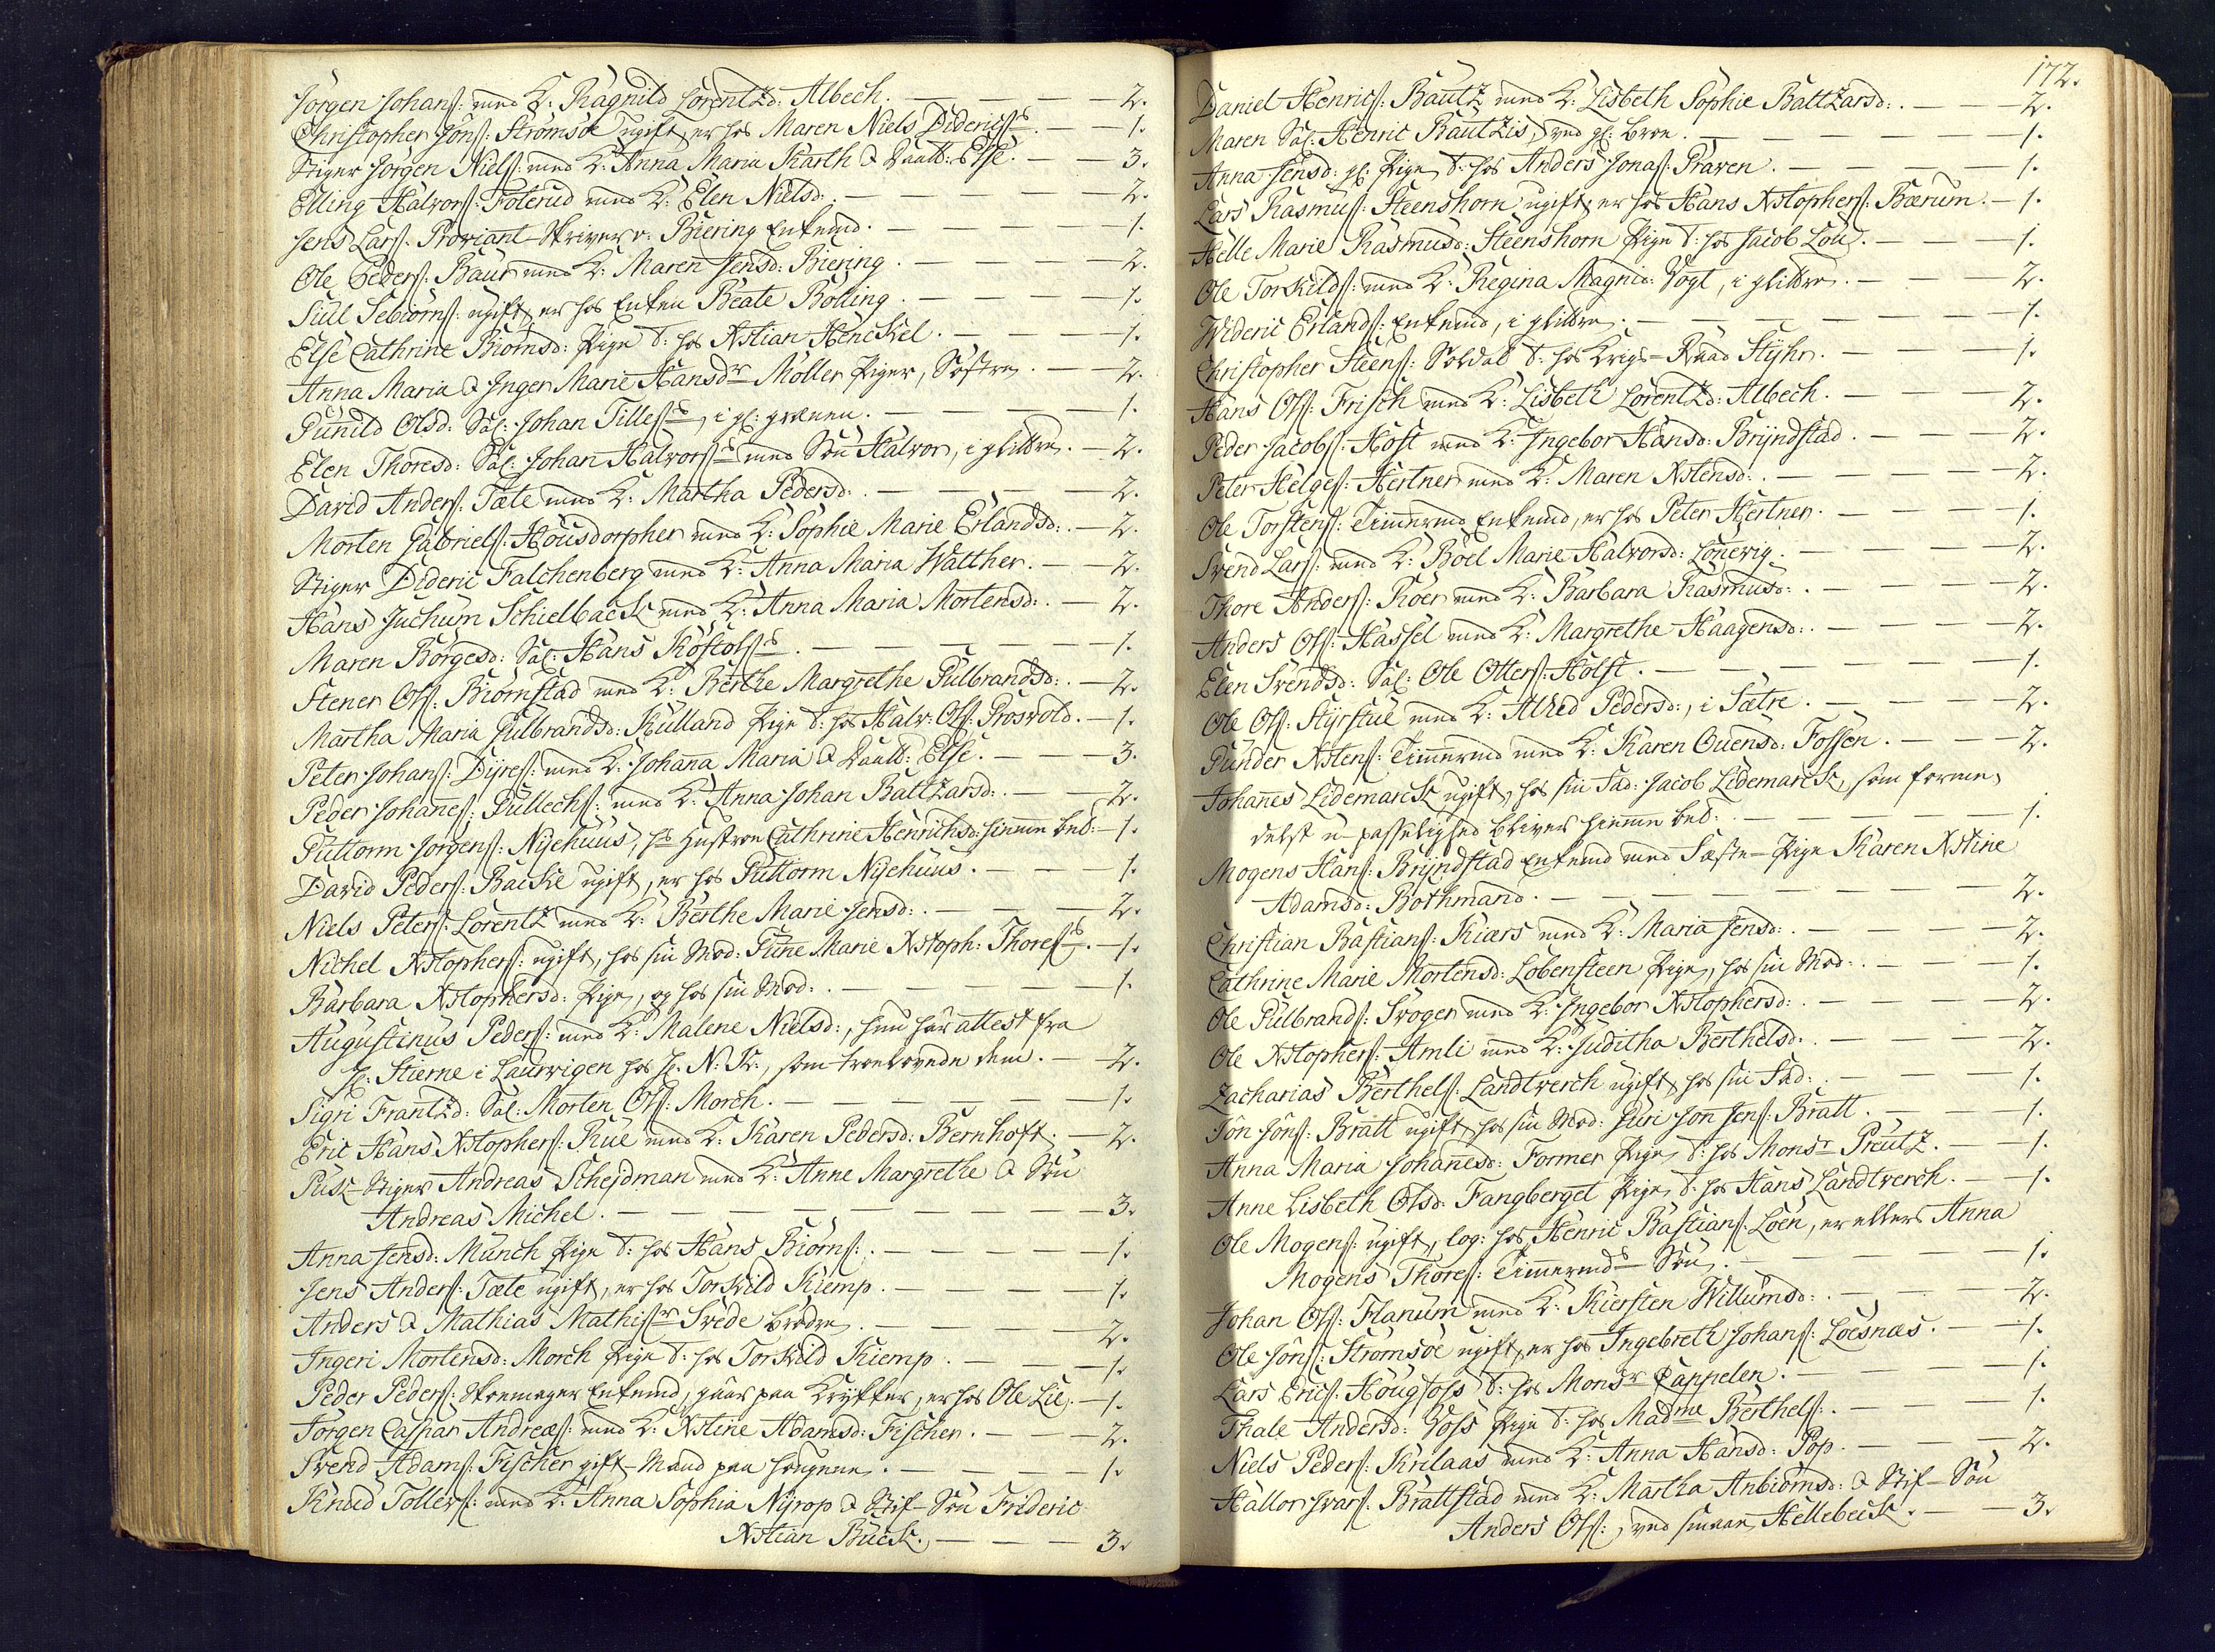 Jörgen Johans: med K: Ragnild Lorentzd: Albech. — — — — 2.
Christopher Jöns: Strømsöe ugift, er hos Maren Niels Diderichs. — — 1.
Stiger Jörgen Niels: med K: Anna Maria Karth & Daatt: Else. — — 3.
Elling Halvors: Foterud med K: Elen Nielsd: — — — — 2.
Jens Lars: Proviant-Skriver v. Biering Enkemd. — — — — 1.
Ole Peders: Baur med K: Maren Jensd: Biering. — — — — 2.
Siul Sebiørns: ugift, er hos Enken Beate Bolling. — — — — 1.
Else Cathrine Biørnsd: Pige t: hos Xstian Henckel. — — — — 1.
Anna Maria & Inger Marie Hansdr Møller Piger, Søstre. — — 2.
Gunild Olsd: Sal: Johan Tilles, i gl: grænen. — — — — 1.
Elen Thoresd: Sal: Johan Halvors med Søn Halvor, i glittre. — 2.
David Anders: Tæte med K: Martha Pedersd: — — — — 2.
Morten Gabriels: Housdorpher med K: Sophie Marie Erlandsd: — 2.
Stiger Dideric Falchenberg med K: Anna Maria Walther. — — 2.
Hans Juchum Schielback med K: Anna Maria Mortensd: — 2.
Maren Börgesd: Sal: Hans Köstols — — — — 1.
Stener Ols: Biørnstad med K: Berthe Margrethe Gulbrandsd: — 2.
Martha Maria Gulbrandsd: Hulland Pige t: hos Halv: Ols: Prosvold. — 1.
Peter Johans: Dyres: med K: Johana Maria & Daatt: Else. — — 3.
Peder Johanes: Gullechs: med K: Anna Johan Baltzarsd: — — 2.
Guttorm Jørgens: Nyehuus, hs Hustroe Cathrine Henrichsd: hiemme bed: — 1.
David Peders: Backe ugift, er hos Guttorm Nyehuus. — — — 1.
Niels Peters: Lorentz med K: Berthe Marie Jensd: — — — 2.
Nichel Xstophers: ugift, hos sin Mod: Gune Marie Xstoph: Thores. — 1.
Barbara Xstophersd: Pige, og hos sin Mod: — — — — 1.
Augustinus Peders: med K: Malene Nielsd:, hun har attest fra
Hr: Stierne i Laurvigen hos H. N: K:, som troelovede dem. — 2.
Sigri Frantzd: Sal: Morten Ols: Morch. — — — — 1.
Eric Hans Xstophers: Rue med K: Karen Pedersd: Bernhoft. — 2.
Puk-Stiger Andreas Schejdman med K: Anne Margrethe & Søn
Andreas Michel. — — — — — 3.
Anna Jensd: Munch Pige t: hos Hans Biørns: — — — — 1.
Jens Anders: Tæte ugift, er hos Torkild Kiemp. — — — — 1.
Anders & Mathias Mathisr Svede brödre. — — — — 2.
Ingeri Mortensd: Morch Pige t: hos Torkild Kiemp. — — — 1.
Peder Peders: Skoemager Enkemd, gaar paa Krykker, er hos Ole Lie. — 1.
Jørgen Caspar Andreæs: med K: Xstine Adamsd: Fischer. — — 2.
Svend Adams: Fischer gift-Mand paa Haugene. — — — 1.
Knud Tollefs: med K: Anna Sophia Nyrop & Stif-Søn Frideric
Xstian Buck. — — — 3.
172.
Daniel Henrics: Bautz med K: Lisbeth Sophie Baltzarsd: — — 2.
Maren Sal: Henric Bautzis, ved gl: broe. — — — — 1.
Anna Jensd: gl: Pige t: hos Anders Jonas: Praven. — — — 1.
Lars Rasmus: Steenshorn ugift, er hos Hans Xstophers: Bærum. — 1.
Helle Marie Rasmusd: Steenshorn Pige t: hos Jacob Lou. — — 1.
Ole Torkilds: med K: Regina Magnid: Vogt, i glittre. — — 2.
Wideric Erlands: Enkemd, i glittre. — — — — 1.
Christopher Steens: Soldat t: hos Krigs-Raad Styhr. — — 1.
Hans Ols: Frisch med K: Lisbeth Lorentzd: Albech. — — 2.
Peder Jacobs: Høst med K: Ingebor Hansd: Bryndstad. — — 2.
Peter Helges: Hertner med K: Maren Xstensd: — — — 2.
Ole Torstens: Timmermd Enkemd, er hos Peter Hertner. — — 1.
Svend Lars: med K: Boel Marie Halvorsd: Lønevig. — — — 2.
Thore Anders: Röer med K: Barbara Rasmusd: — — — 2.
Anders Ols: Hassel med K: Margrethe Haagensd: — — — 2.
Elen Svendsd: Sal: Ole Otters: Holst. — — — — 1.
Ole Ols: Styrstue med K: Alhed Pedersd:, i Sætre. — — — 2.
Gunder Xstens: Timmermd med K: Karen Ouensd: Fossen. — — 2.
Johanes Lidemarck ugift, hos sin Fad: Jacob Lidemarck, som forme-
delst u-passelighed bliver hiemme bed: — — — — 1.
Mogens Hans: Bryndstad Enkemd med Fæste-Pige Karen Xstine
Adamsd: Bothmand. — — — — 2.
Christian Bastians: Kiærs med K: Maria Jensd: — — — 2.
Cathrine Marie Mortensd: Lobensteen Pige, hos sin Mod: — — 1.
Ole Gulbrands: Svoger med K: Ingebor Xstophersd: — — — 2.
Ole Xstophers: Amli med K: Juditha Berthelsd: — — — 2.
Zacharias Berthels: Landtverch ugift, hos sin Fad: — — — 1.
Jön Jöns: Bratt ugift, hos sin Mod: Guri Jon Jens: Bratt. — — 1.
Anna Maria Johanesd: Former Pige, t: hos Monsr Preutz. — — 1.
Anne Lisbeth Olsd: Fangberget Pige, t: hos Hans Landtverch. — — 1.
Ole Mogens: ugift, log: hos Henric Bastians: Löen, er ellers Anna
Mogens Thores: Timmermds Søn. — — — — 1.
Johan Ols: Flanum med K: Kiersten Willumsd: — — — 2.
Ole Jöns: Strømsöe ugift, er hos Ingebreth Johans: Loesnæs. — — 1.
Lars Erics: Hougfoss t: hos Monsr Cappelen. — — — 1.
Thale Andersd: Voss Pige t: hos Madme Berthels: — — — 1.
Niels Peders: Krilaas med K: Anna Hansd: Pop. — — — 2.
Hallor Ivars: Brattstad med K: Martha Anbiørnsd: & Stif-Søn
Anders Ols:, ved Hellebeck. — — 3.